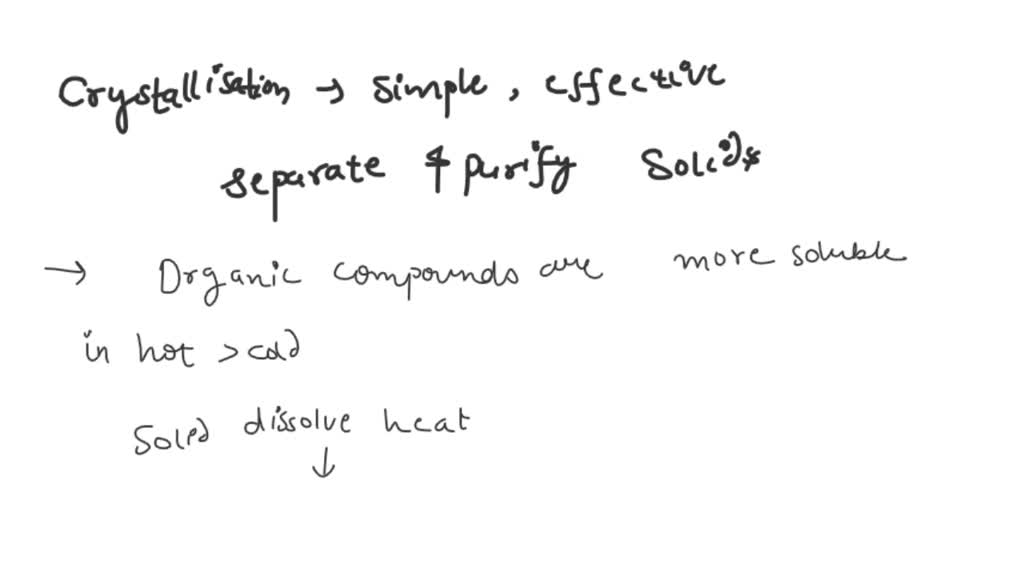 Crystallisation → simple, effective
separate & purify Solids
→ Organic compounds are more soluble
in hot > cold
Solid dissolve heat
↓